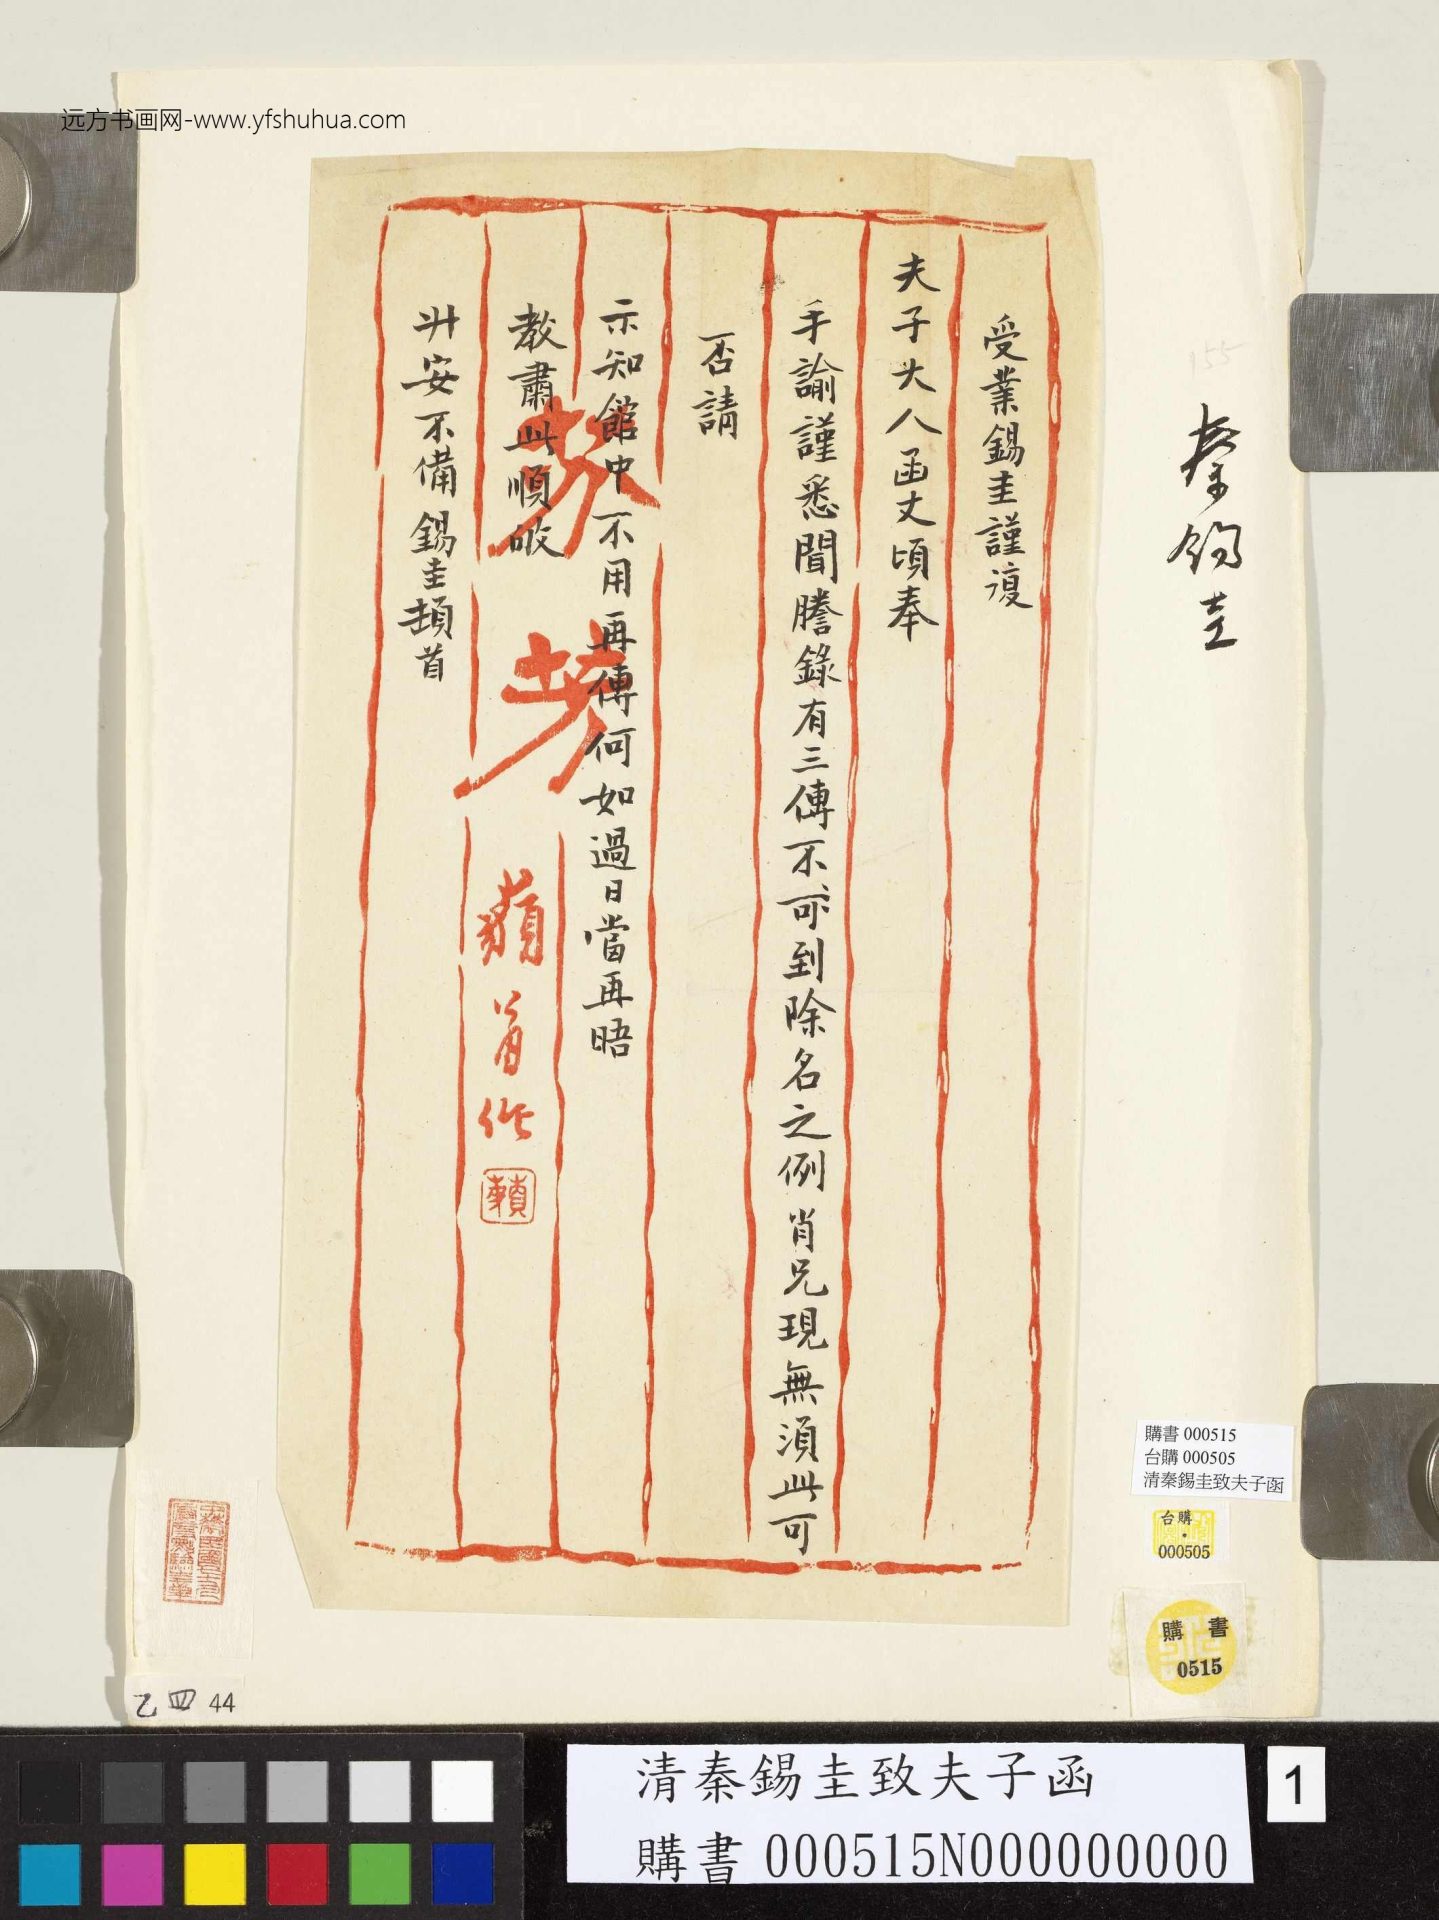 远方书画网-www.yfshuhua.com
受業錫圭謹復
夫子大人函丈頃奉
手諭謹悉聞謄錄有三傳不到除名之例肖兄現無須此可
否請
示知館中不用再傳何如過日當再晤
教肅此順叩
升安不備錫圭頓首
作
秦錫圭
155
購書 000515
台購 000505
清秦錫圭致夫子函
台購
000505
購書
0515
乙四 44
清秦錫圭致夫子函
購書 000515N000000000
1